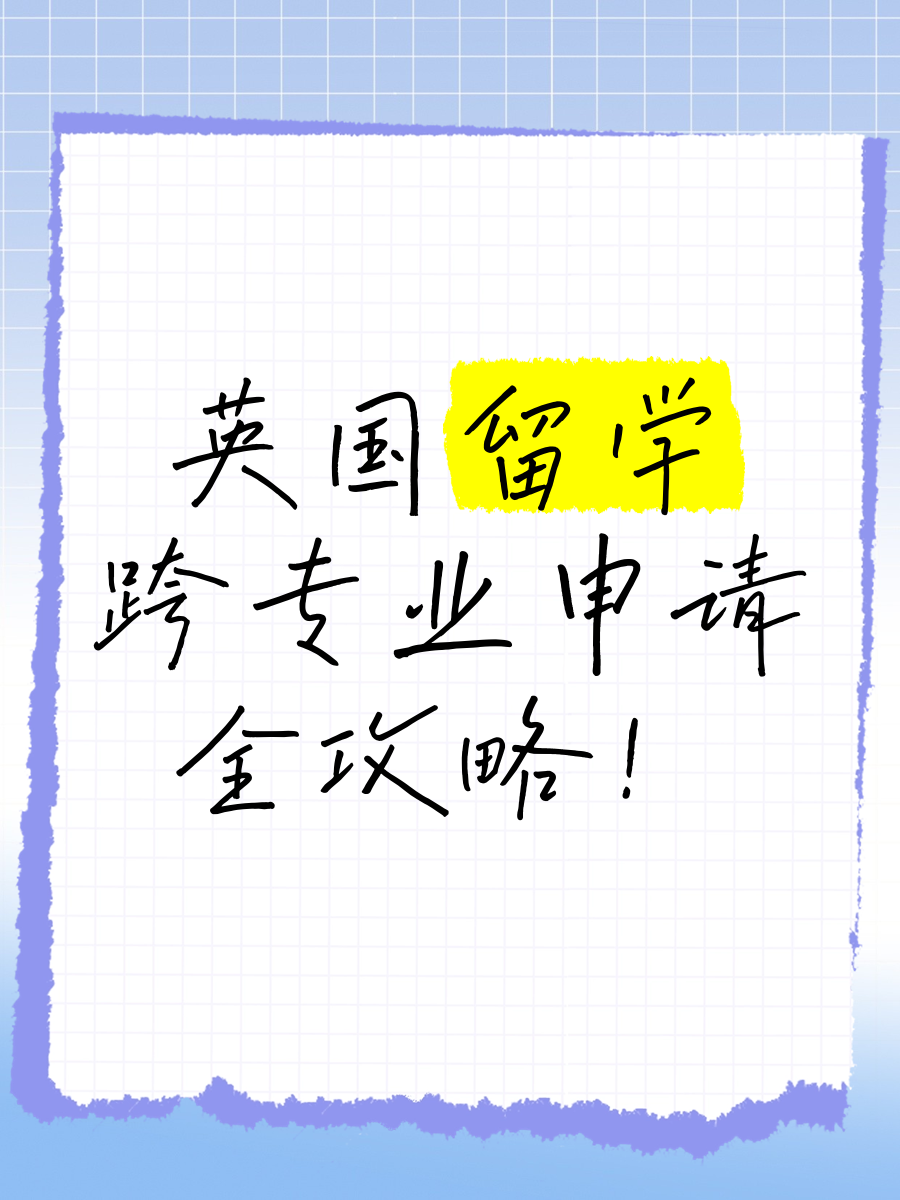 英国留学
跨专业申请
全攻略!